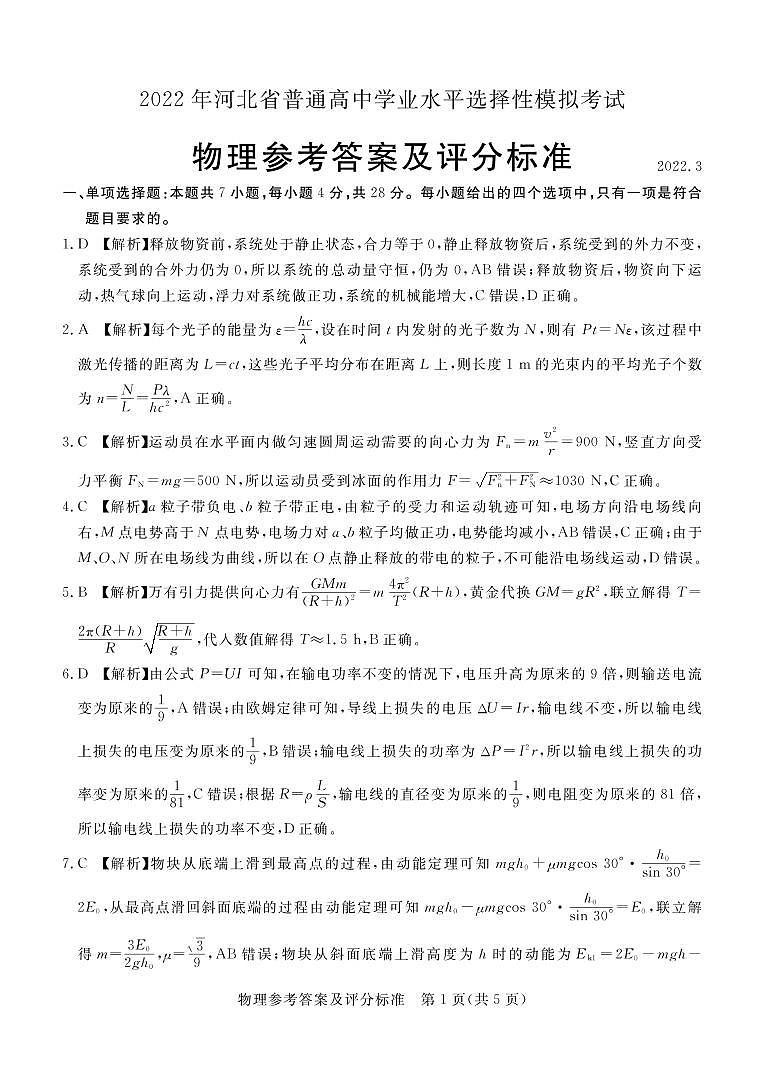 2022 年河北省普通高中学业水平选择性模拟考试
物理参考答案及评分标准 2022.3
一、单项选择题:本题共 7 小题,每小题 4 分,共 28 分。每小题给出的四个选项中,只有一项是符合
题目要求的。
1. D 【解析】释放物资前,系统处于静止状态,合力等于 0,静止释放物资后,系统受到的外力不变,
系统受到的合外力仍为 0,所以系统的总动量守恒,仍为 0,AB 错误;释放物资后,物资向下运
动,热气球向上运动,浮力对系统做正功,系统的机械能增大,C 错误,D 正确。
2. A 【解析】每个光子的能量为 ε=hc/λ,设在时间 t 内发射的光子数为 N,则有 Pt=Nε,该过程中
激光传播的距离为 L=ct,这些光子平均分布在距离 L 上,则长度 1 m 的光束内的平均光子个数
为 n=N/L=Pλ/hc²,A 正确。
3. C 【解析】运动员在水平面内做匀速圆周运动需要的向心力为 Fₙ=m v²/r=900 N,竖直方向受
力平衡 F_N=mg=500 N,所以运动员受到冰面的作用力 F=√(Fₙ²+F_N²)≈1030 N,C 正确。
4. C 【解析】a 粒子带负电、b 粒子带正电,由粒子的受力和运动轨迹可知,电场方向沿电场线向
右,M 点电势高于 N 点电势,电场力对 a、b 粒子均做正功,电势能均减小,AB 错误,C 正确;由于
M、O、N 所在电场线为曲线,所以在 O 点静止释放的带电的粒子,不可能沿电场线运动,D 错误。
5. B 【解析】万有引力提供向心力有 GMm/(R+h)²=m 4π²/T²(R+h),黄金代换 GM=gR²,联立解得 T=
2π(R+h)/R √((R+h)/g),代入数值解得 T≈1.5 h,B 正确。
6. D 【解析】由公式 P=UI 可知,在输电功率不变的情况下,电压升高为原来的 9 倍,则输送电流
变为原来的 1/9,A 错误;由欧姆定律可知,导线上损失的电压 ΔU=Ir,输电线不变,所以输电线
上损失的电压变为原来的 1/9,B 错误;输电线上损失的功率为 ΔP=I²r,所以输电线上损失的功
率变为原来的 1/81,C 错误;根据 R=ρ L/S,输电线的直径变为原来的 1/9,则电阻变为原来的 81 倍,
所以输电线上损失的功率不变,D 正确。
7. C 【解析】物块从底端上滑到最高点的过程,由动能定理可知 mgh₀+μmgcos 30°·h₀/sin 30°=
2E₀,从最高点滑回斜面底端的过程由动能定理可知 mgh₀-μmgcos 30°·h₀/sin 30°=E₀,联立解
得 m=3E₀/2gh₀,μ=√3/9,AB 错误;物块从斜面底端上滑高度为 h 时的动能为 E_k1=2E₀-mgh-
物理参考答案及评分标准 第 1 页(共 5 页)